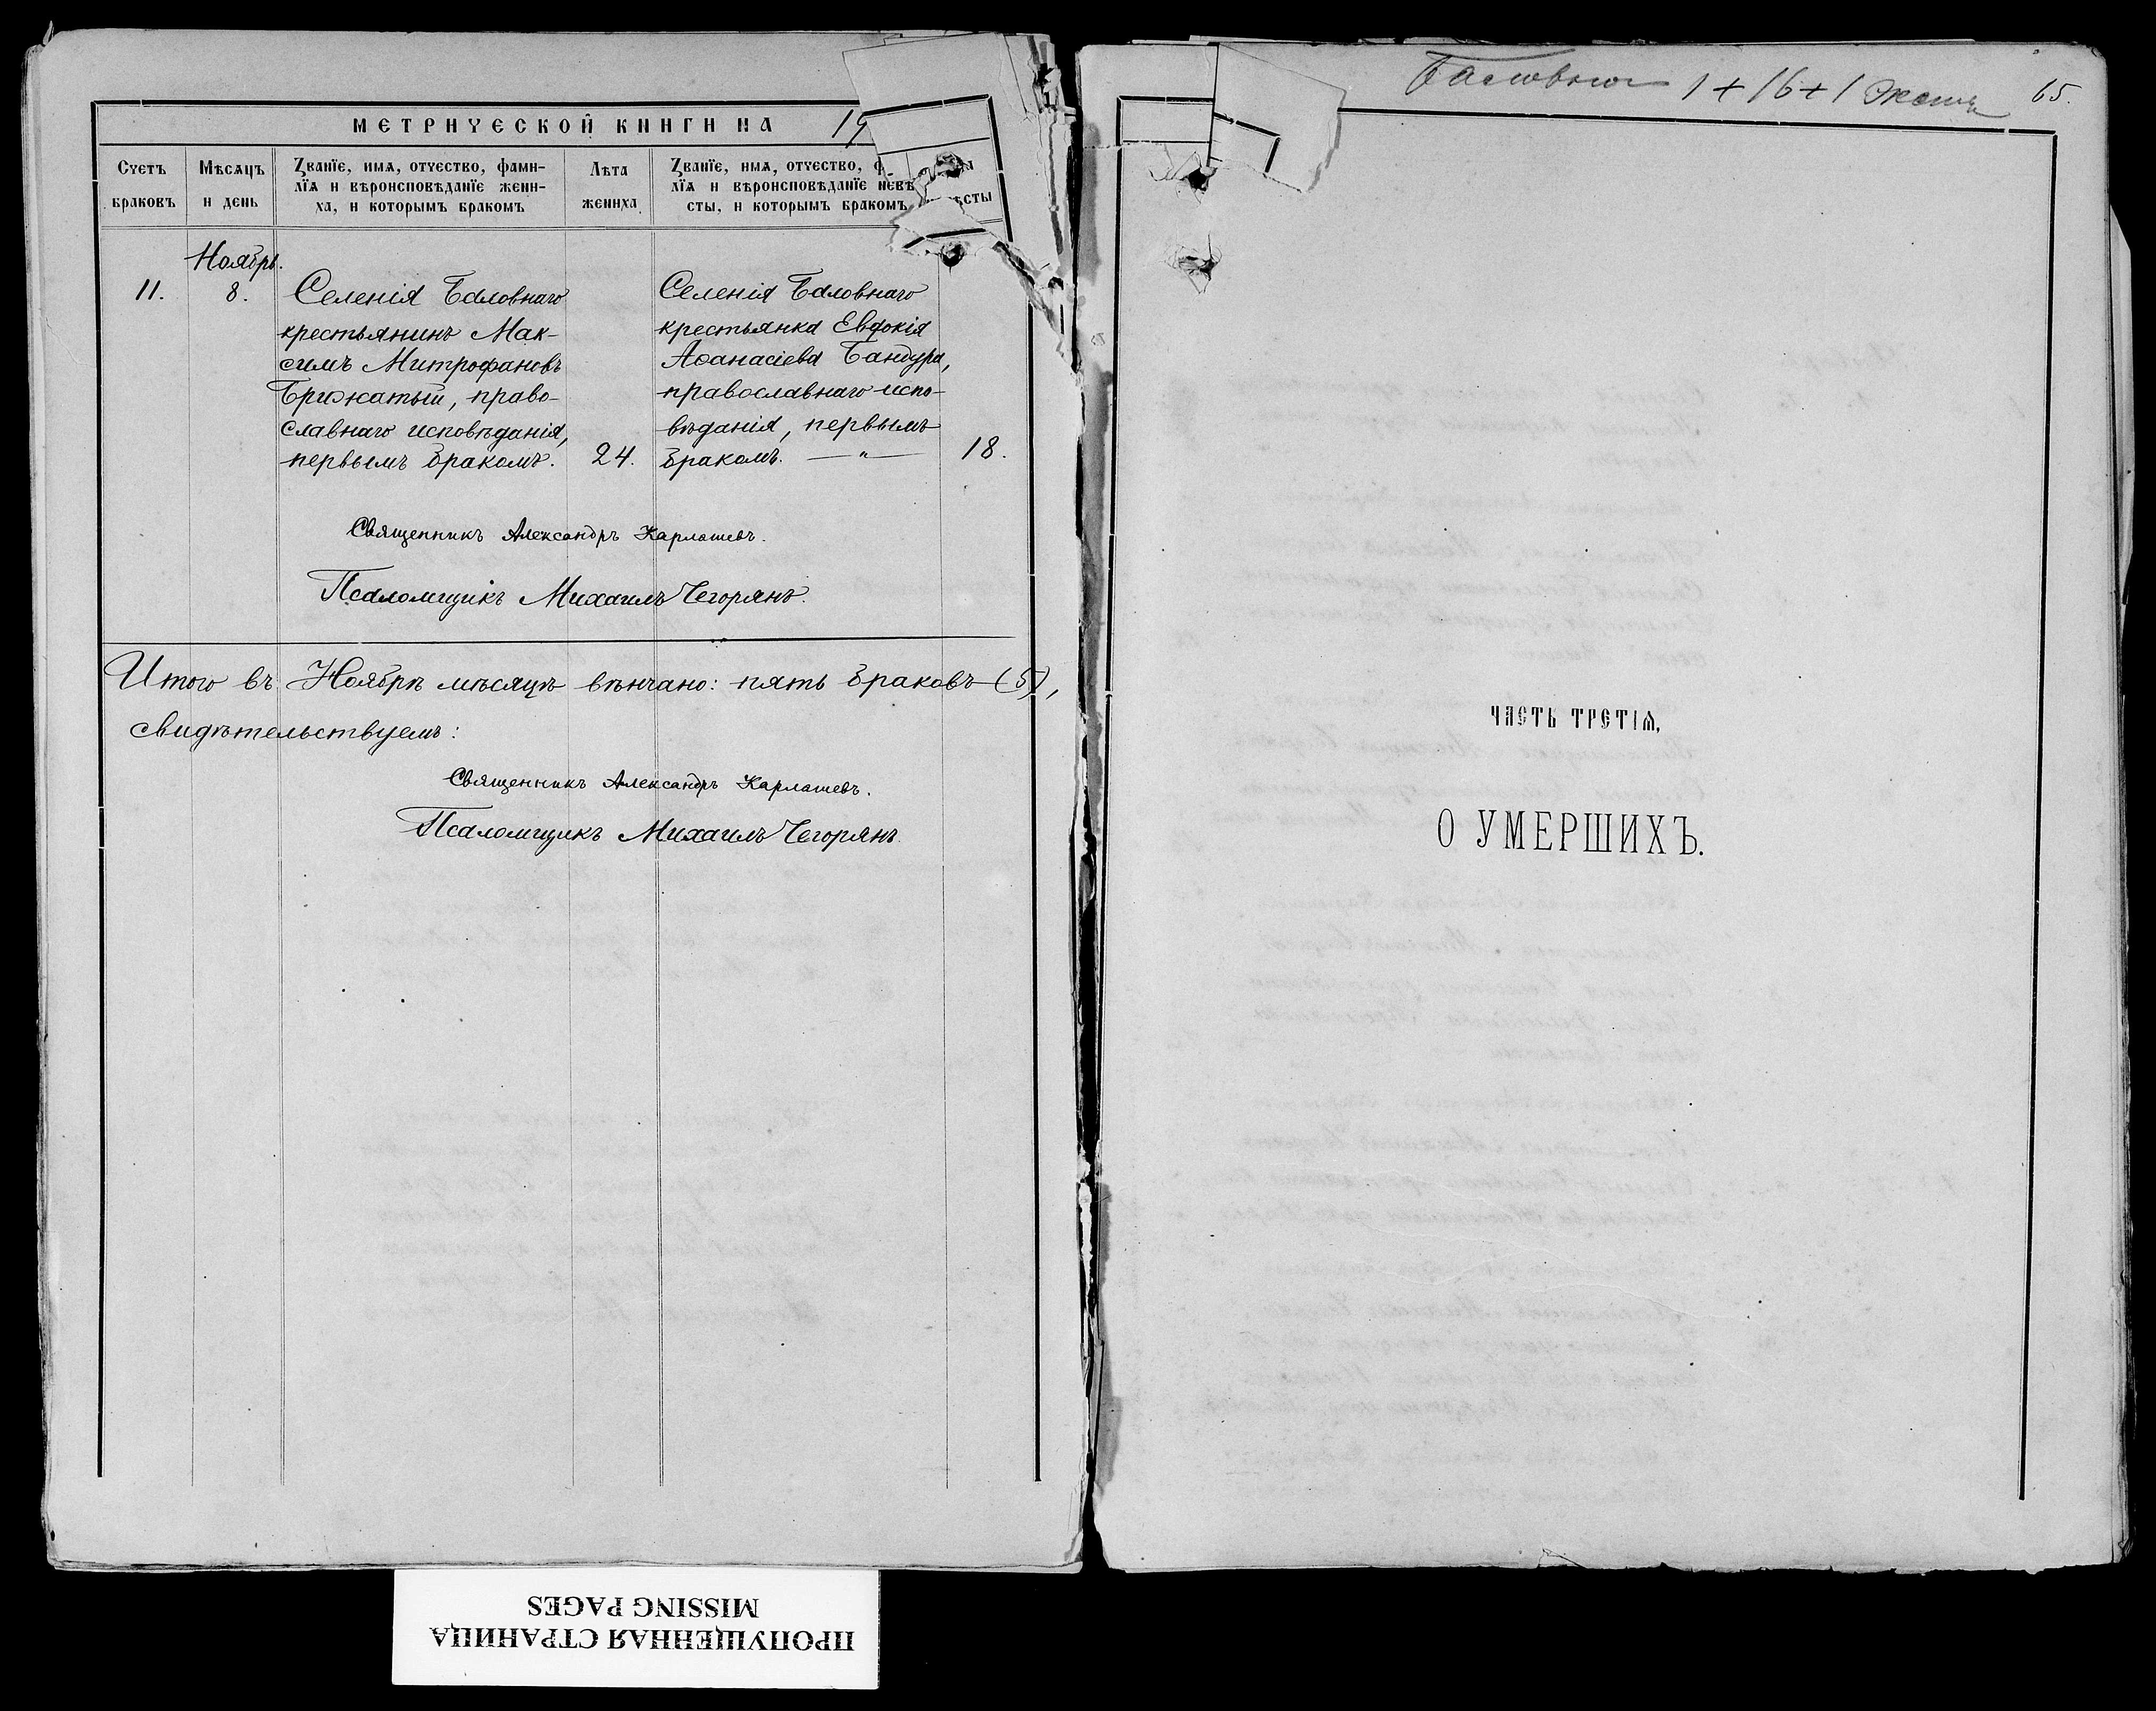 МЕТРИЧЕСКОЙ КНИГИ НА 19
Счетъ браковъ
Мѣсяцъ и день
Званїе, имѧ, отчество, фами-
лїѧ и вѣроисповѣданїе жени-
ха, и которымъ бракомъ
Лѣта жениха
Званїе, имѧ, отчество, ф
лїѧ и вѣроисповѣданїе невѣ
сты, и которымъ бракомъ
ѣсты
Ноябрь.
11.
8.
Селенія Баловнаго
крестьянинъ Мак-
симъ Митрофановъ
Брижатый, право-
славнаго исповѣданія,
первымъ бракомъ.
24.
Селенія Баловнаго
крестьянка Евдокія
Аѳанасіева Бандура,
православнаго испо-
вѣданія, первымъ
бракомъ. — " —
18.
Священникъ Александръ Карлашевъ.
Псаломщикъ Михаилъ Чегорянъ.
Итого въ Ноябрѣ мѣсяцѣ вѣнчано: пять браковъ (5),
свидѣтельствуемъ:
Священникъ Александръ Карлашевъ.
Псаломщикъ Михаилъ Чегорянъ.
ПРОПУЩЕННАЯ СТРАНИЦА
MISSING PAGES
1 + 16 + 1
65.
ЧАСТЬ ТРЕТІѦ,
О УМЕРШИХЪ.